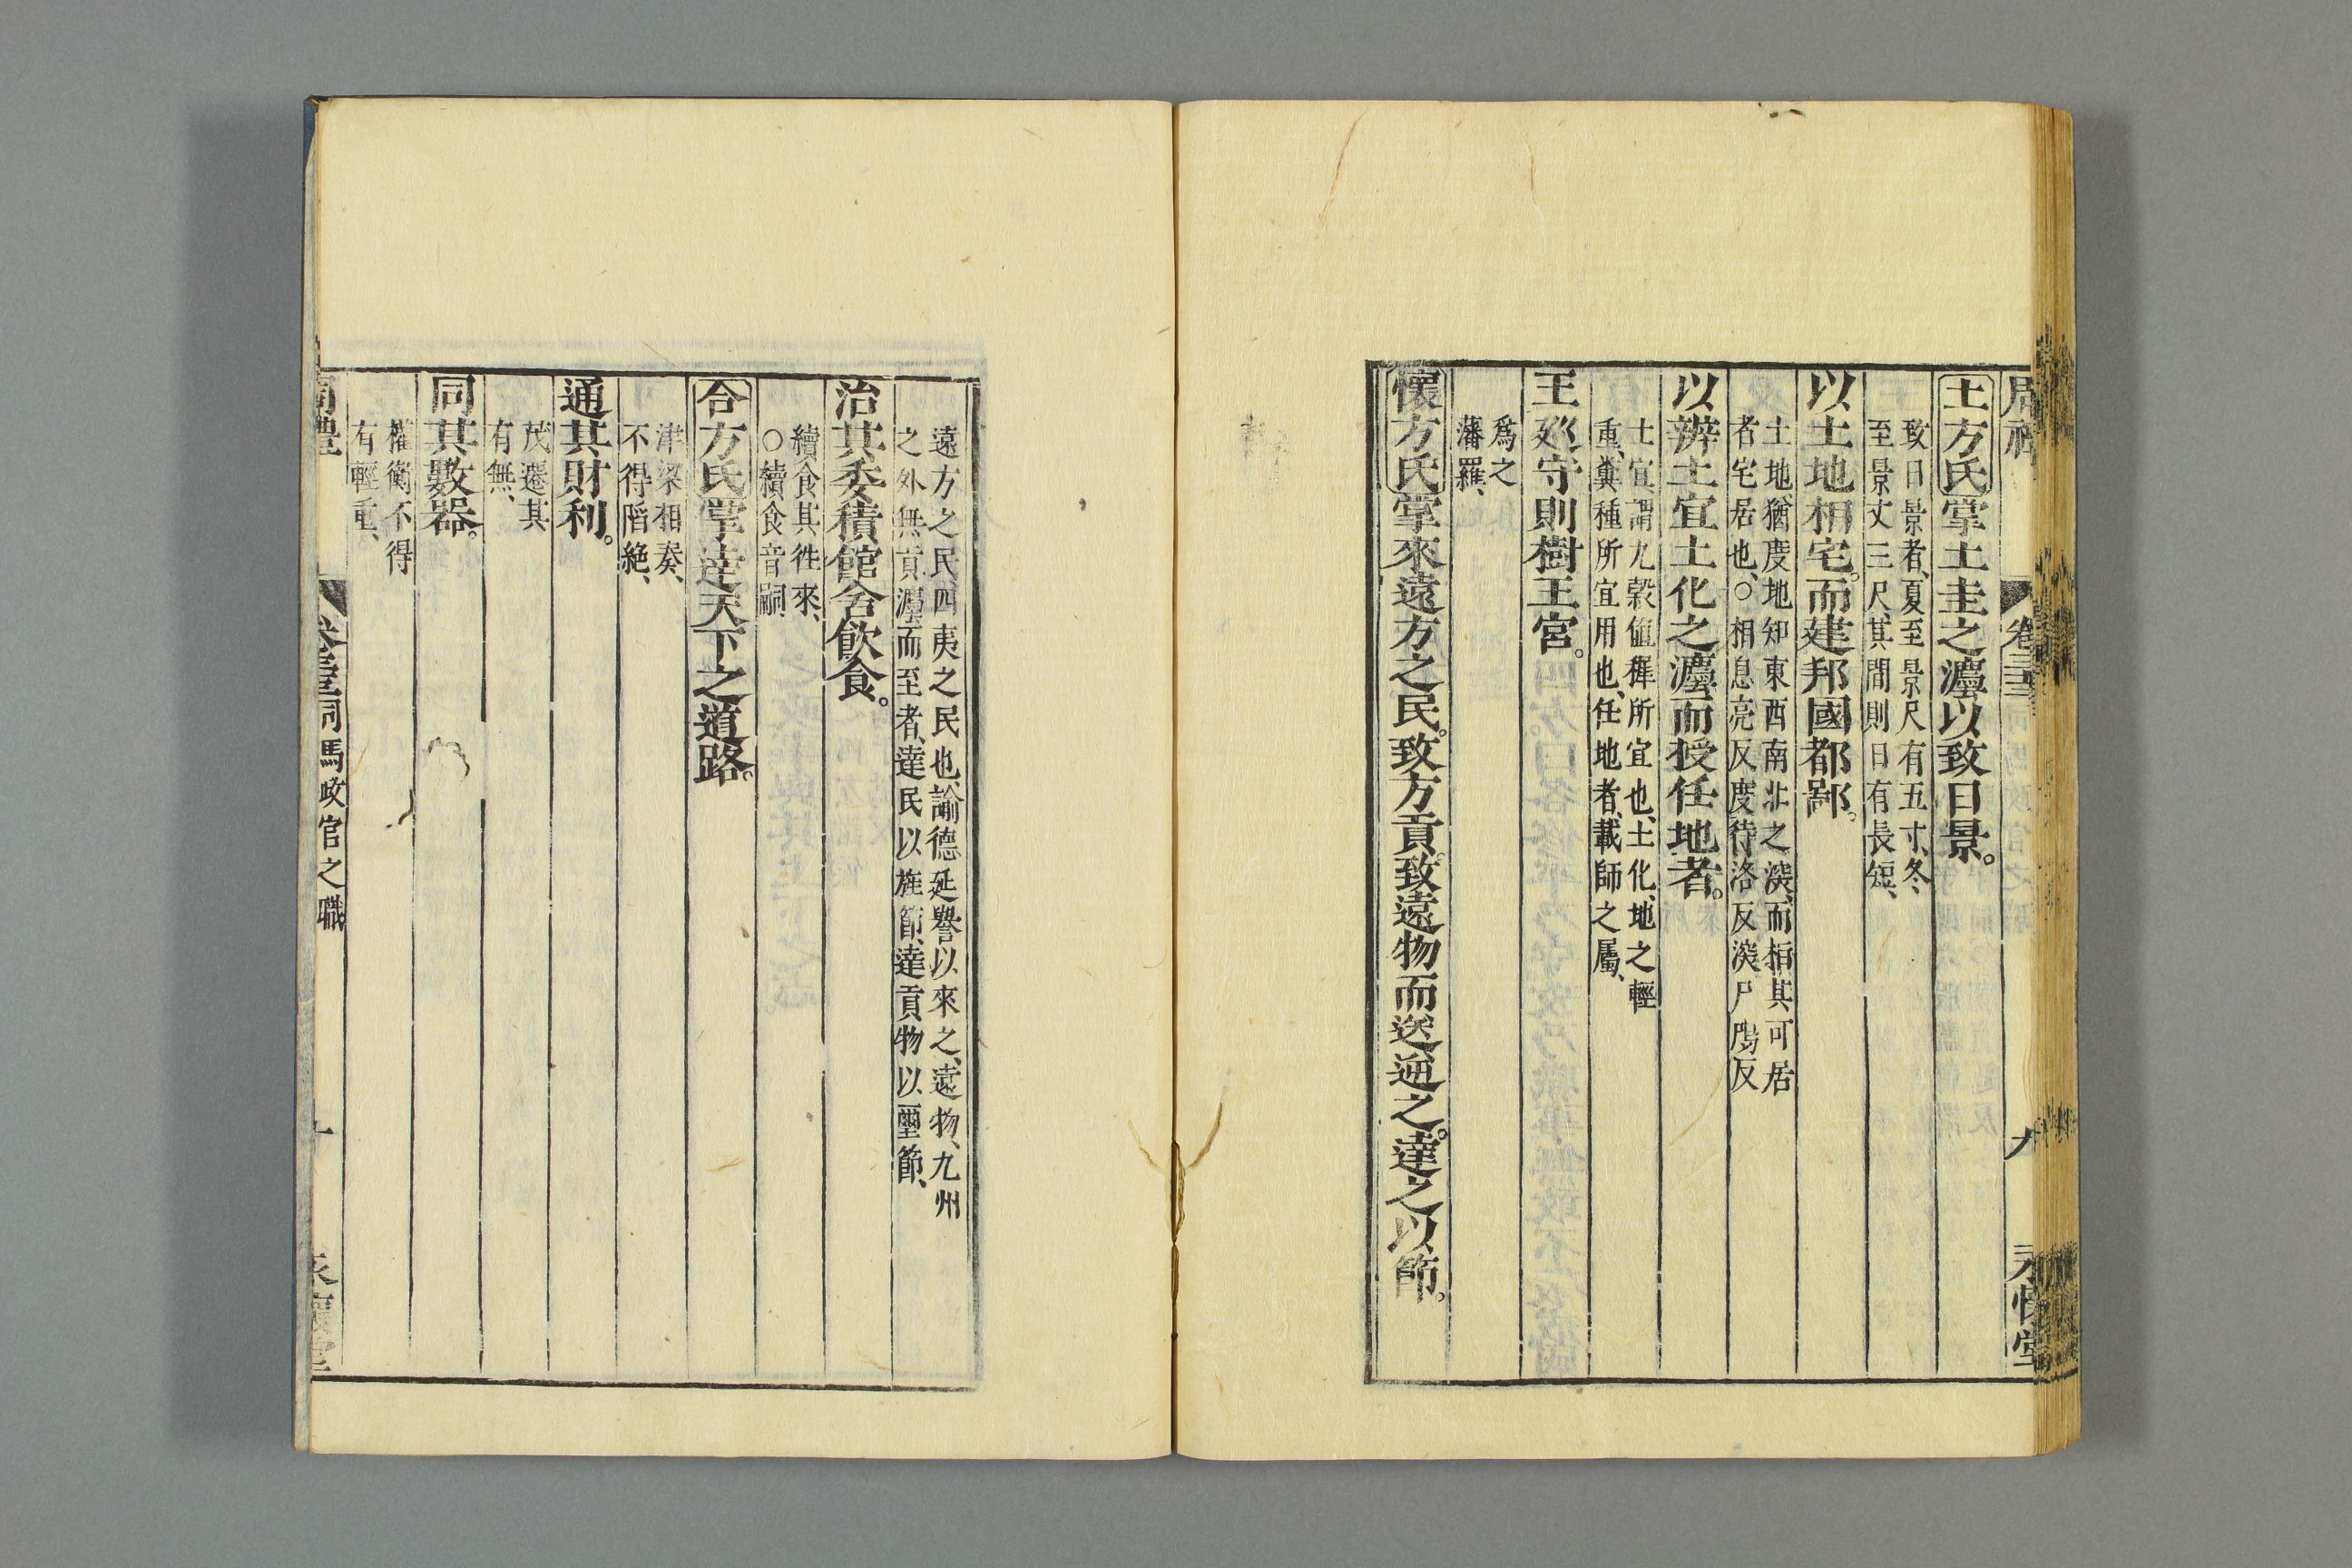 土方氏掌土圭之灋以致日景。
致日景者、夏至景尺有五寸、冬
至景丈三尺、其間則日有長短、
以土地相宅。而建邦國都鄙。
土地、猶度地知東西南北之深、而相其可居
者宅居也、○相息亮反度待洛反深尸鴆反
以辨土宜土化之灋而授任地者。
土宜謂九穀稙穉所宜也、土化、地之輕
重、糞種所宜用也、任地者、載師之屬、
王巡守則樹王宮。
爲之
藩羅、
懷方氏掌來遠方之民。致方貢。致遠物而送逆之。達之以節。
卷三十三
九
永懷堂
遠方之民四夷之民也、諭德延譽以來之、遠物、九州
之外無貢灋而至者、達民以旌節、達貢物以璽節、
治其委積館舍飲食。
續食其往來、
○續食音嗣
合方氏掌達天下之道路。
津梁相奏、
不得陷絶、
通其財利。
茂遷其
有無、
同其數器。
權衡不得
有輕重、
周禮
卷三十三 司馬政官之職
十
永懷堂